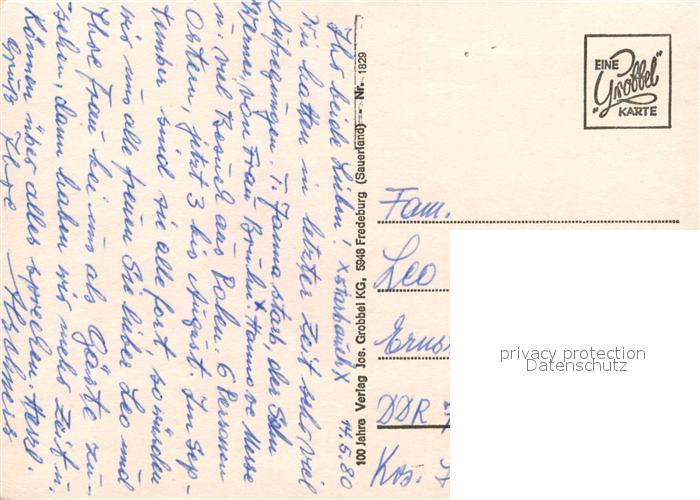 14.5.80
Ihr beide Lieben!
Wir hatten in letzter Zeit sehr viel
Aufregungen. T. Janna starb, der Sohn
Werner, von Frau Bruhn + Hannover Messe
u. viel Besuch aus Polen. 6 Personen
Ostern, jetzt 3 bis August. Im Sep-
tember sind sie alle fort, so würden
wir uns alle freuen Sie lieber Leo und
Ihre Frau bei uns als Gäste zu
sehen, dann haben wir mehr Zeit u.
können über alles sprechen. Herzl.
Gruß Ihre
100 Jahre Verlag Jos. Grobbel KG, 5948 Fredeburg (Sauerland) — Nr. 1829
EINE
"Grobbel"
KARTE
Fam.
Leo
DDR
privacy protection
Datenschutz